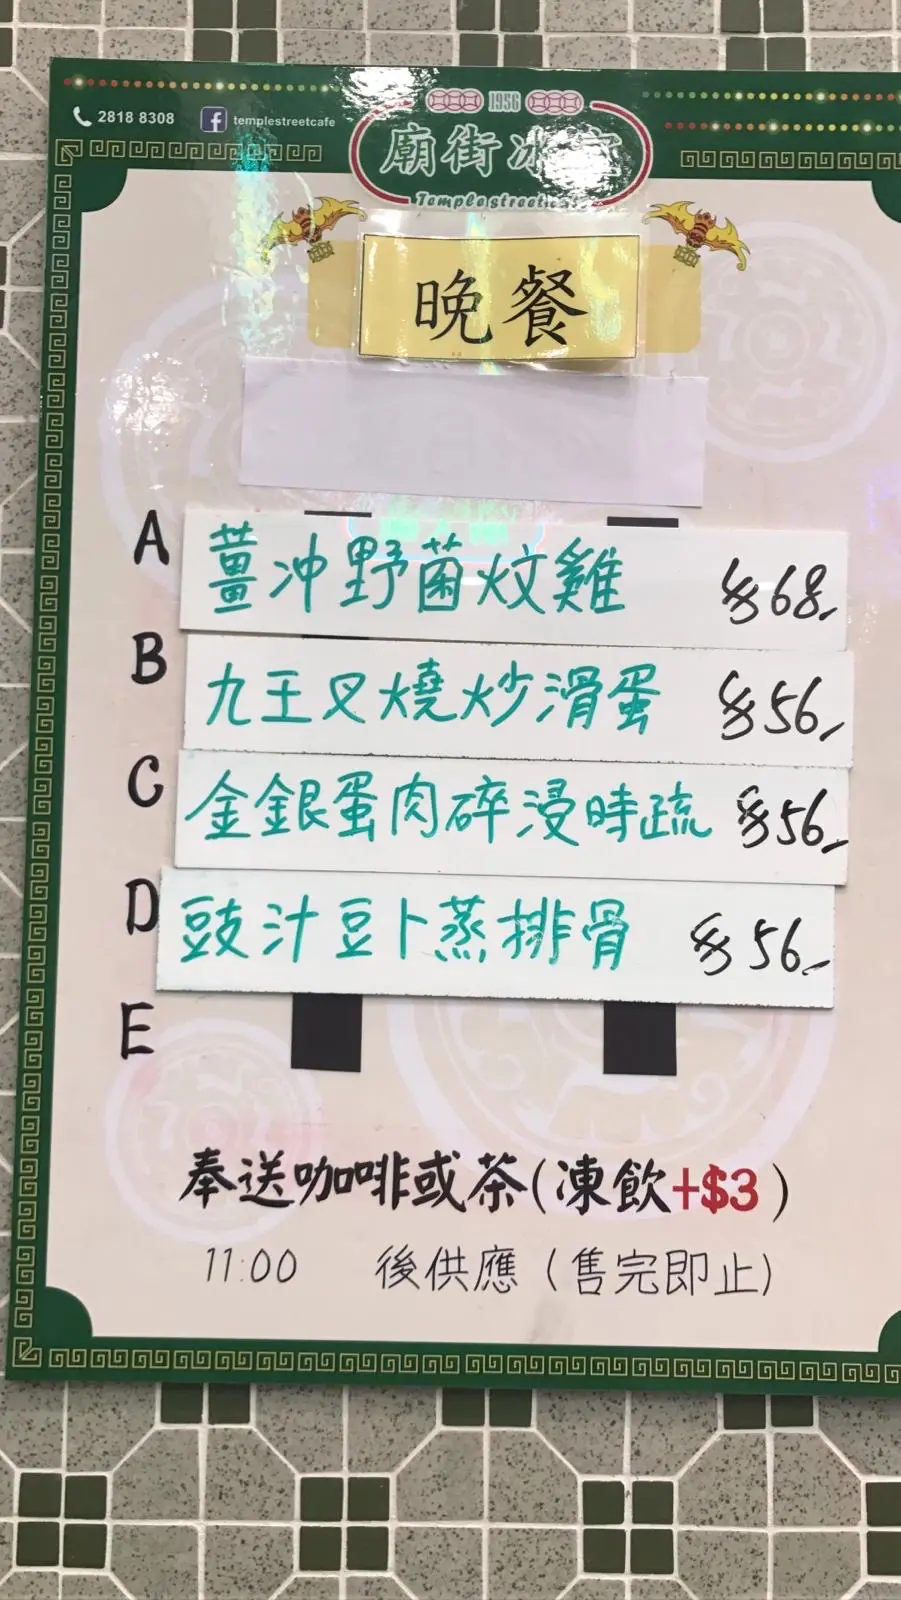 2818 8308 templestreetcafe
1956
廟街冰室
Temple street cafe
晚餐
A 薑冲野菌炆雞 $68
B 九王叉燒炒滑蛋 $56
C 金銀蛋肉碎浸時疏 $56
D 豉汁豆卜蒸排骨 $56
E
奉送咖啡或茶(凍飲+$3)
11:00 後供應(售完即止)